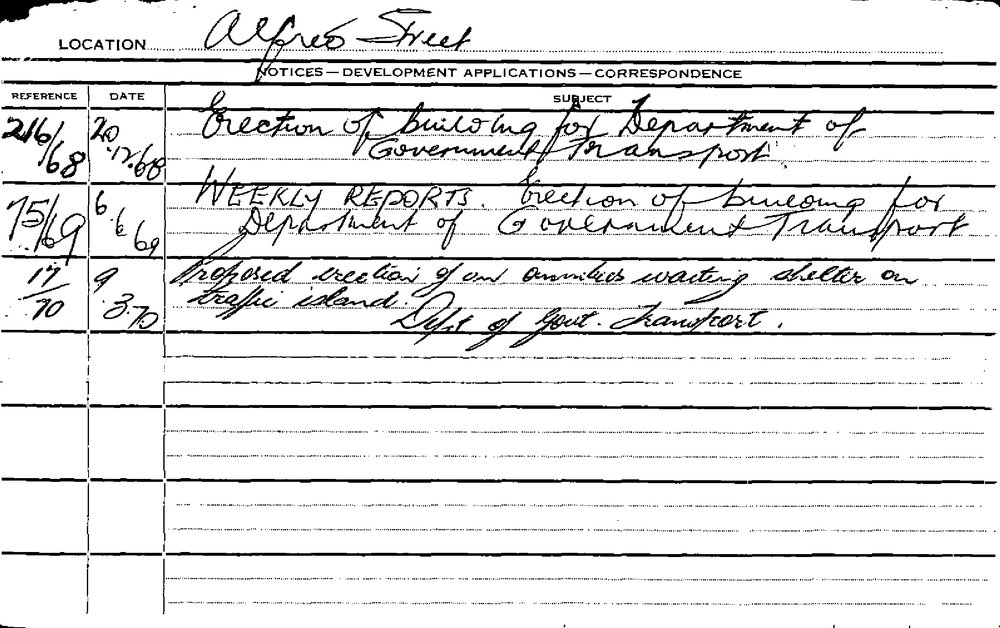 LOCATION Alfred Street
NOTICES—DEVELOPMENT APPLICATIONS—CORRESPONDENCE
REFERENCE DATE SUBJECT
216/68 20.12.68 Erection of building for Department of
Government Transport.
75/69 6.6.69 WEEKLY REPORTS. Erection of building for
Department of Government Transport
17/70 9.3.70 Proposed erection of an amenities waiting shelter on
traffic island.
Dept of Govt. Transport.